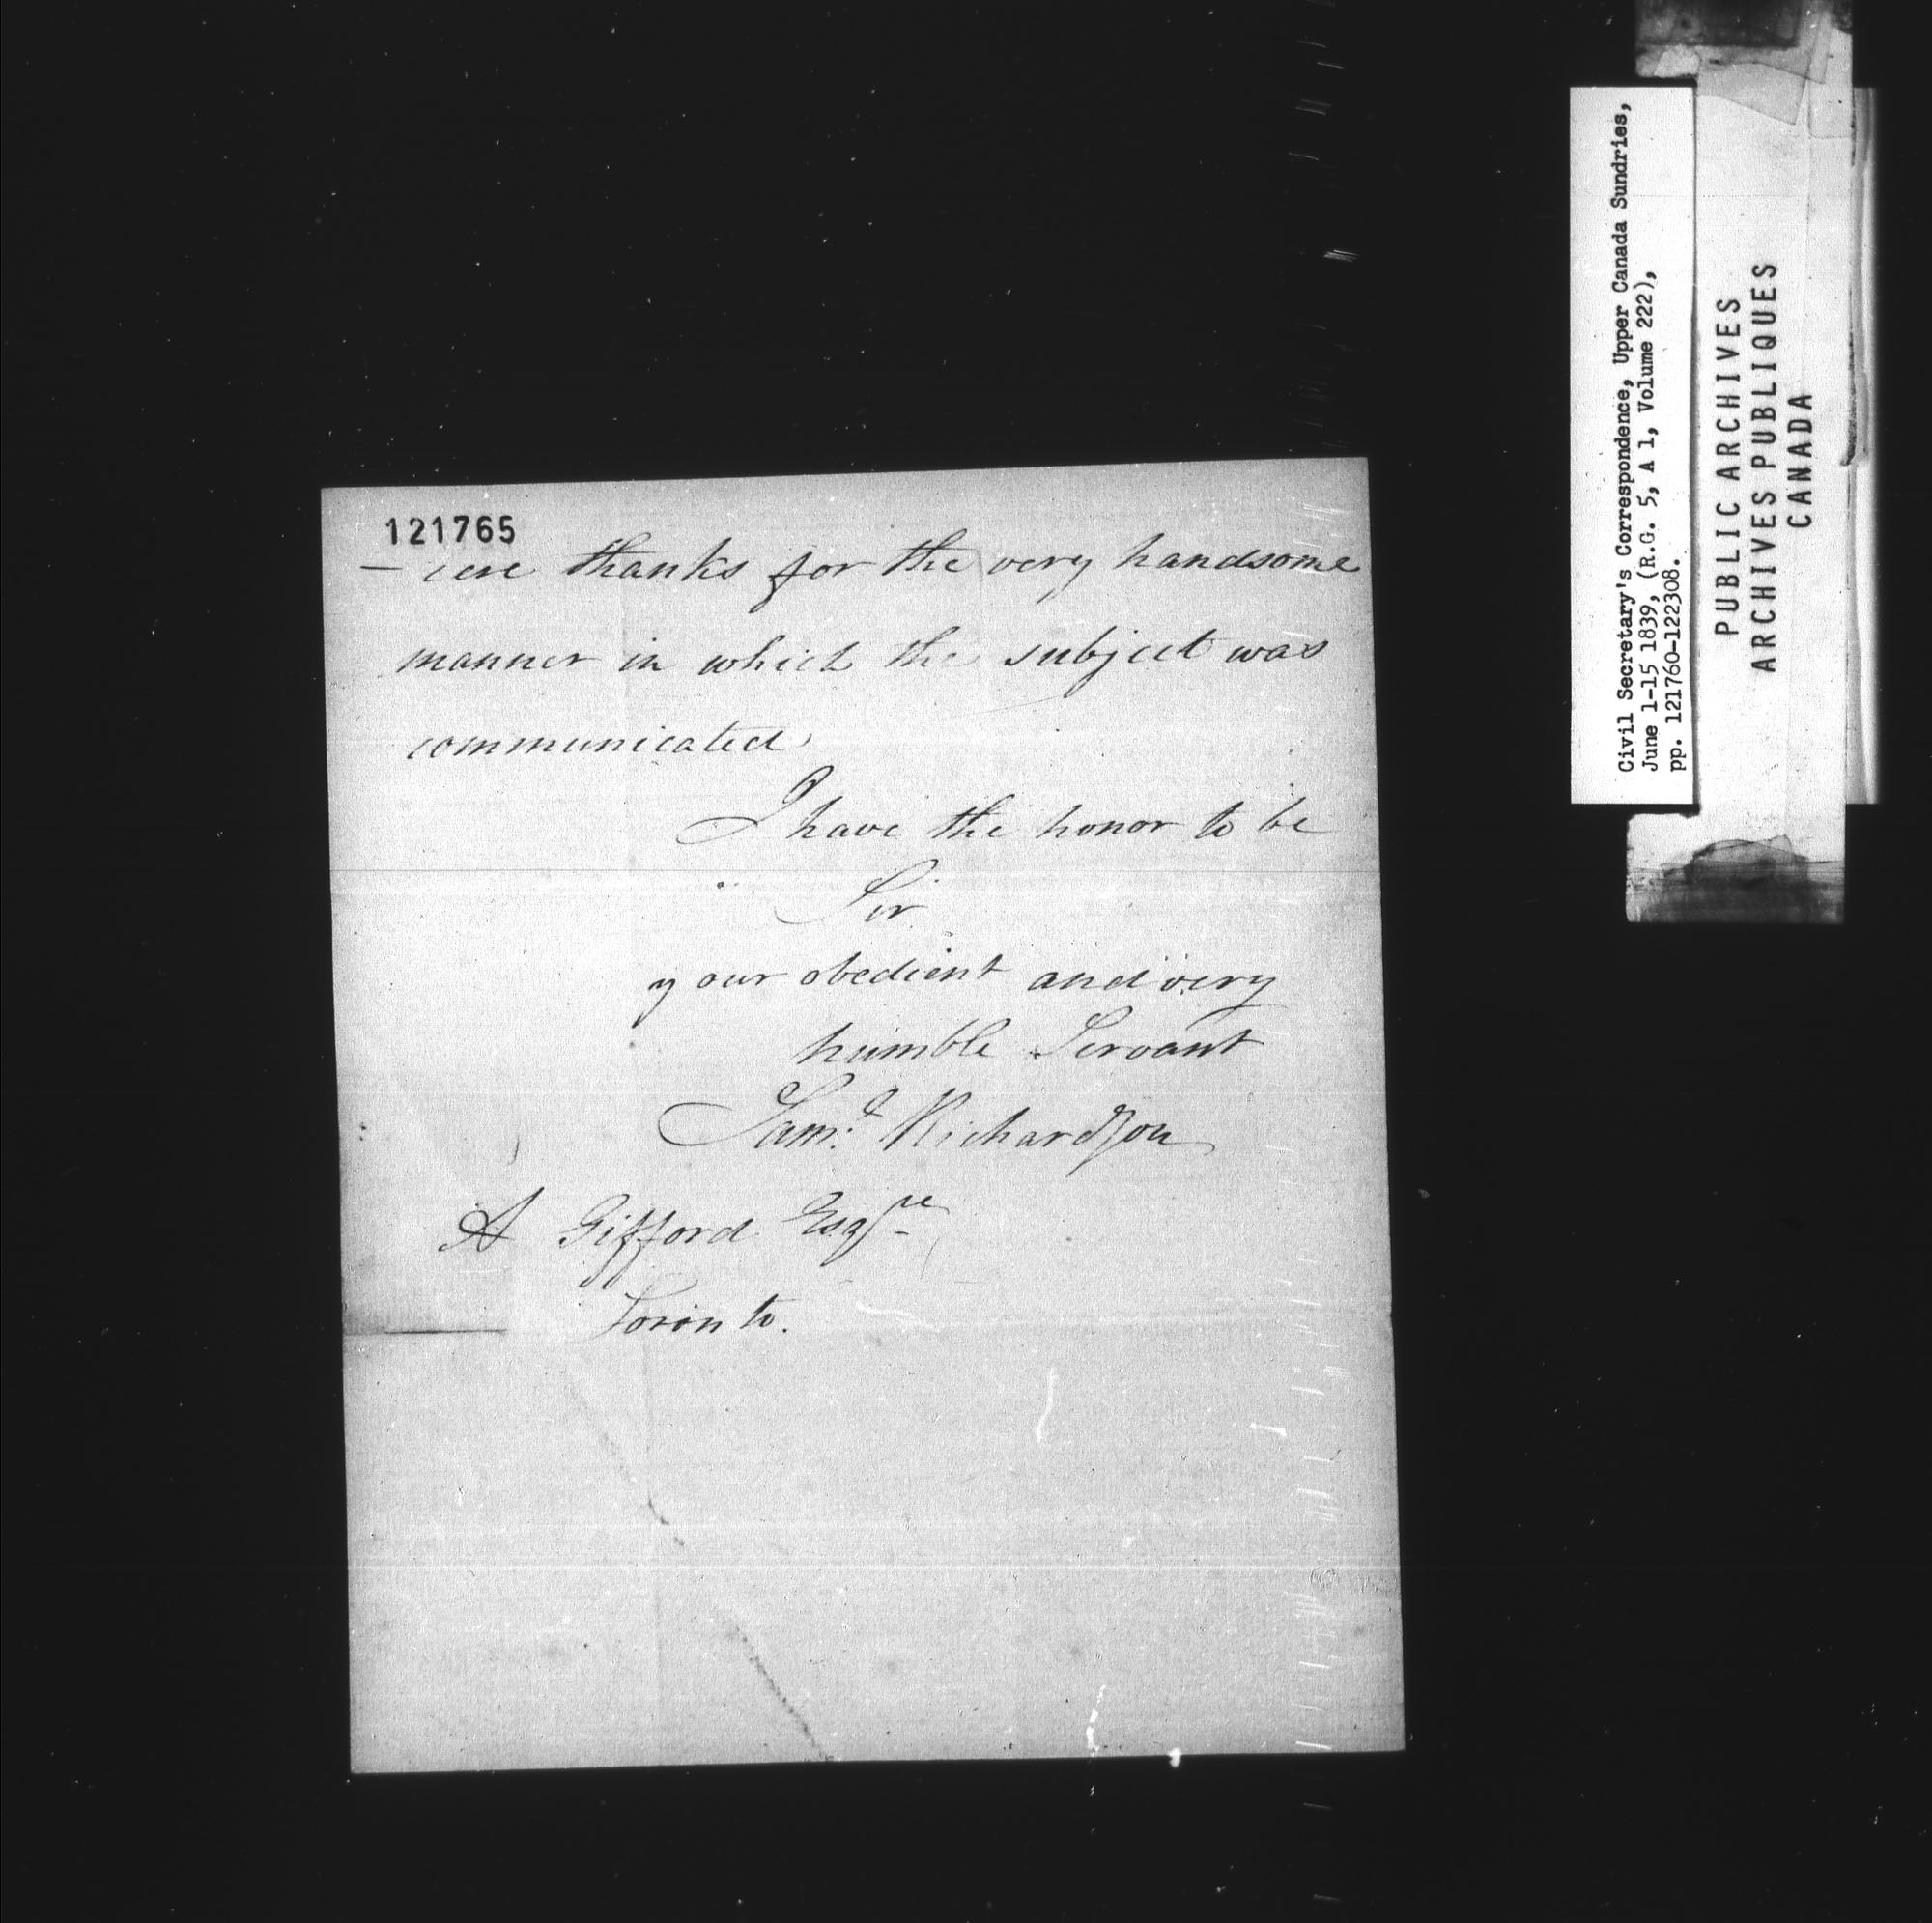 121765
- cere thanks for the very handsome
manner in which the subject was
communicated
I have the honor to be
Sir
your obedient and very
humble Servant
Saml. Richardson
A Gifford Esqre
Toronto.
Civil Secretary's Correspondence, Upper Canada Sundries,
June 1-15 1839, (R.G. 5, A 1, Volume 222),
pp. 121760-122308.
PUBLIC ARCHIVES
ARCHIVES PUBLIQUES
CANADA